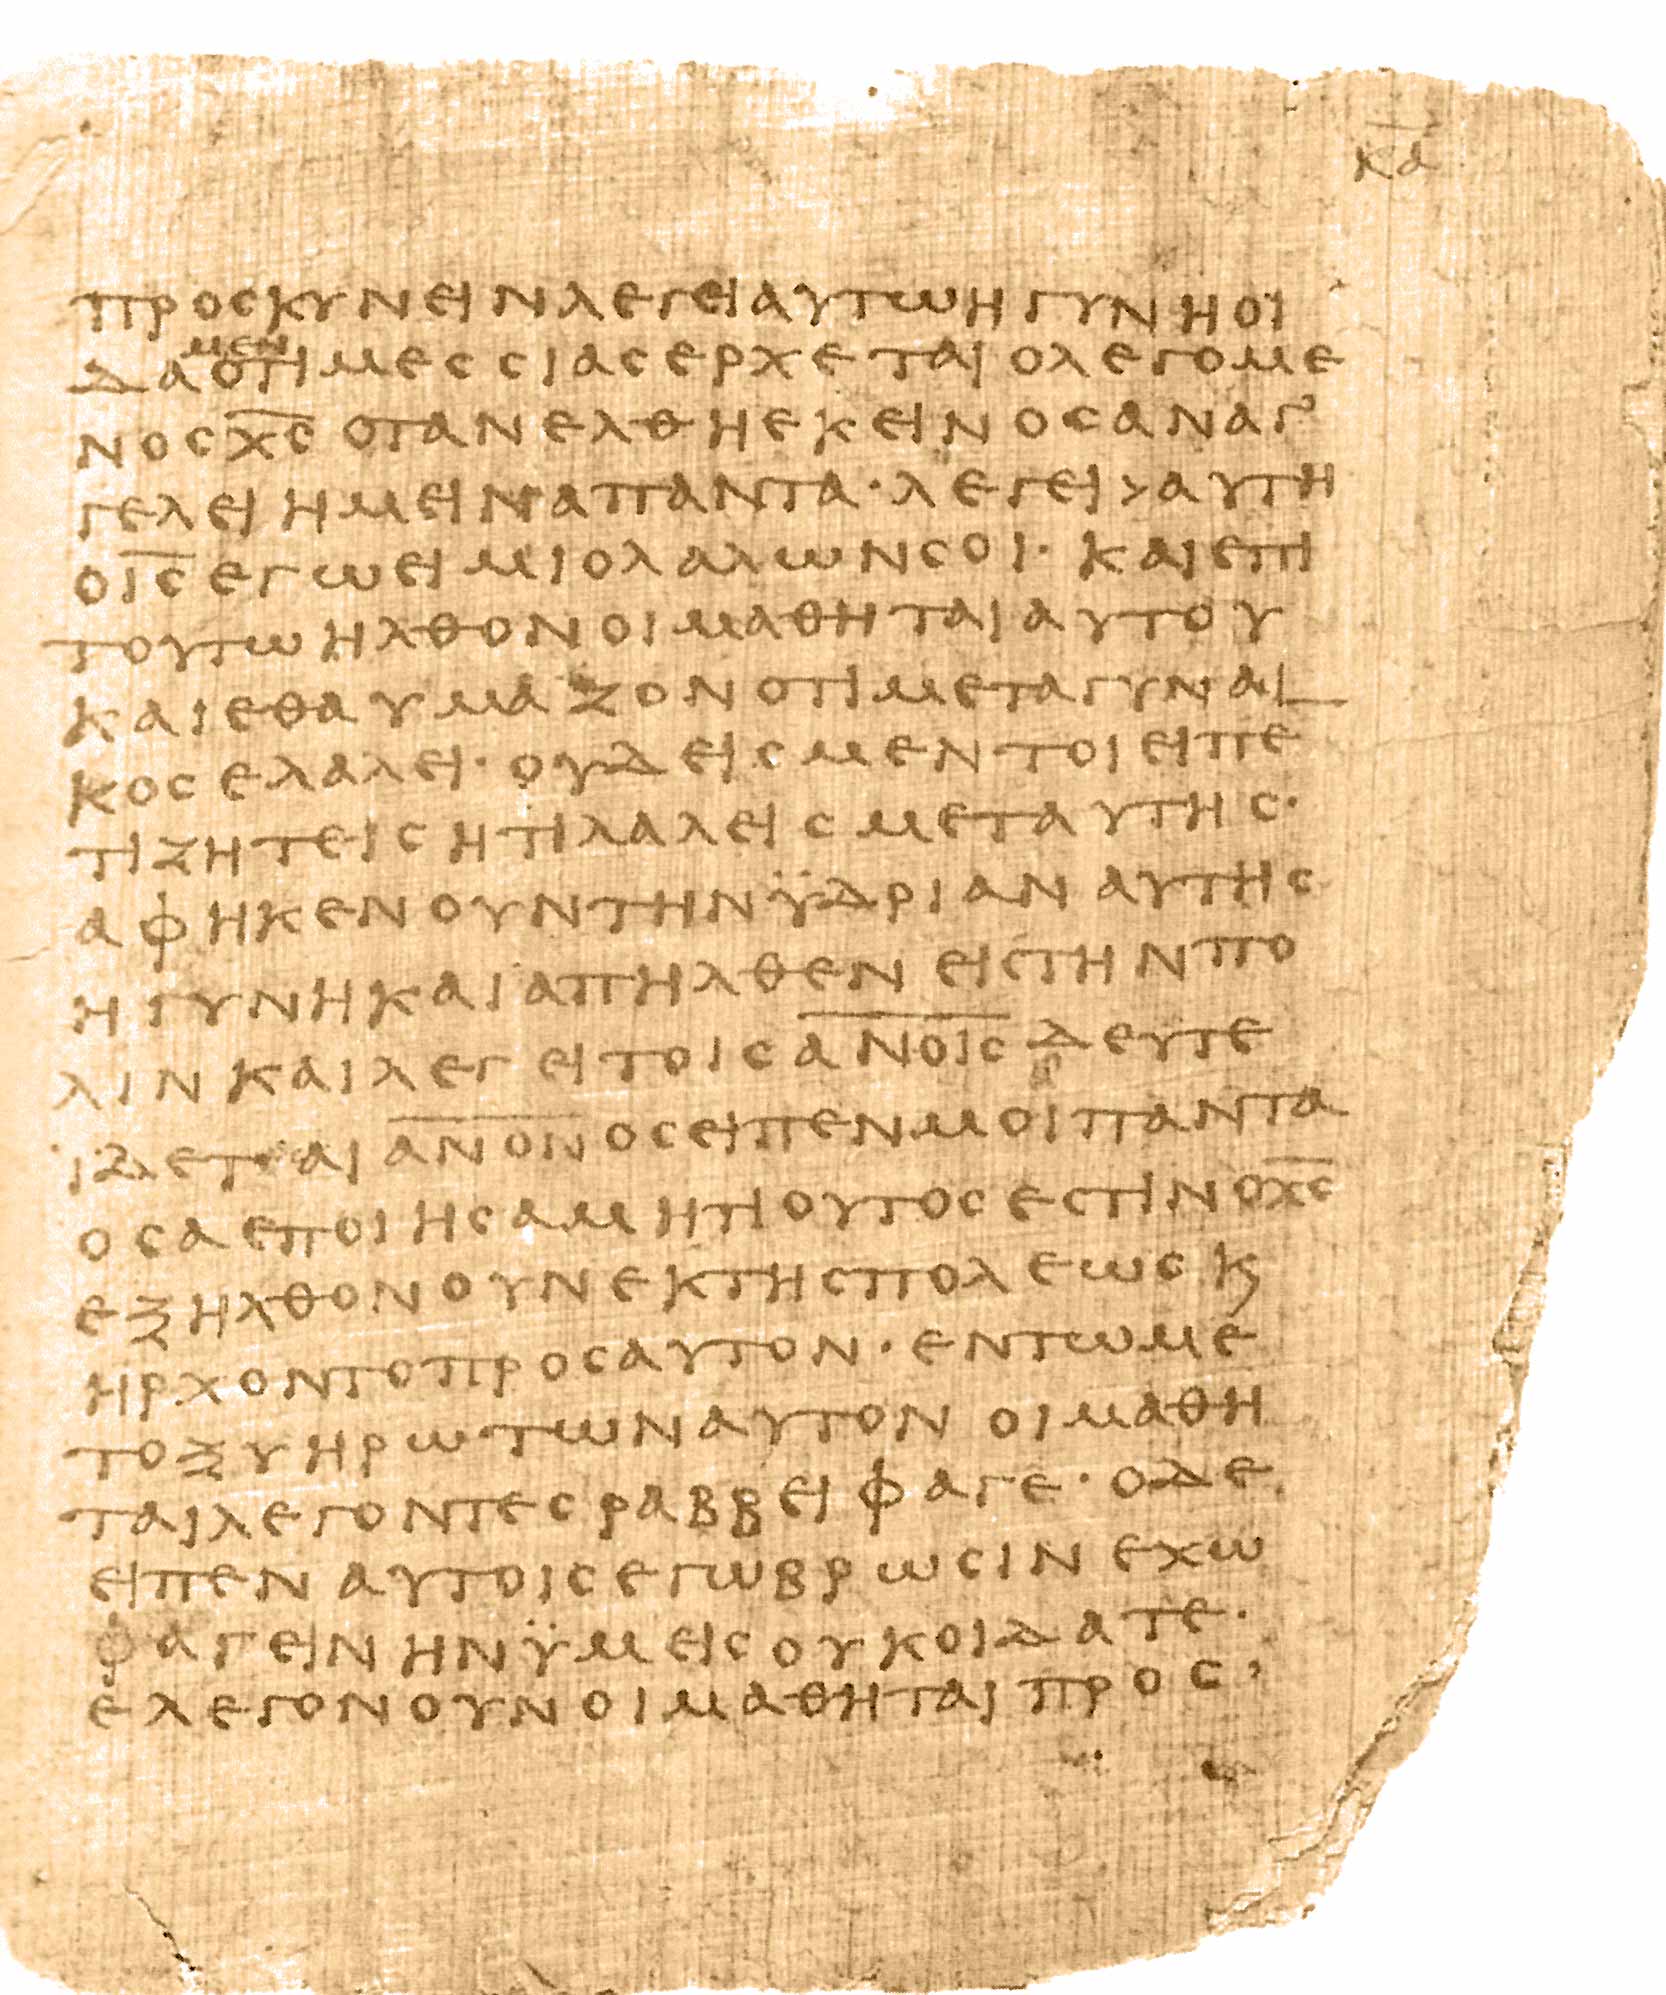 κα
προσκυνειν λεγει αυτω η γυνη οι
μεν
δα οτι μεσσιας ερχεται ο λεγομε
νος χ̅ς̅ οταν ελθη εκεινος αναγ᾽
γελει ημειν απαντα· λεγει > αυτη
ο ι̅ς̅ εγω ειμι ο λαλων σοι· και επι
τουτω ηλθον οι μαθηται αυτου
και εθαυμαζον οτι μετα γυναι
κος ελαλει· ουδεις μεντοι ειπε
τι ζητεις η τι λαλεις μετ αυτης·
αφηκεν ουν την ϋδριαν αυτης
η γυνη και απηλθεν εις την πο
λιν και λεγει τοις α̅ν̅ο̅ι̅ς̅ δευτε
ϊδεται α̅ν̅ο̅ν̅ ος ειπεν μοι παντα
οσα εποιησα μητι ουτος εστιν ο χ̅ς̅
εξηλθον ουν εκ της πολεως κ
ηρχοντο προς αυτον· εν τω με
τοξυ ηρωτων αυτον οι μαθη
ται λεγοντες ραββει φαγε· ο δε
ειπεν αυτοις εγω βρωσιν εχω
φαγειν ην ϋμεις ουκ οιδατε·
ελεγον ουν οι μαθηται προς᾽